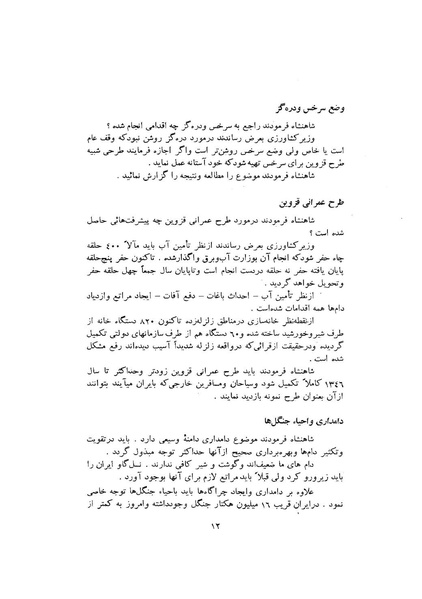 وضع سرخس ودره‌گز
شاهنشاه فرمودند راجع به سرخس ودره‌گز چه اقدامی انجام شده ؟
وزیرکشاورزی بعرض رساندند درمورد دره‌گز روشن نبودکه وقف عام
است یا خاص ولی وضع سرخس روشن‌تر است واگر اجازه فرمایند طرحی شبیه
طرح قزوین برای سرخس تهیه شودکه خود آستانه عمل نماید .
شاهنشاه فرمودند موضوع را مطالعه ونتیجه را گزارش نمائید .
طرح عمرانی قزوین
شاهنشاه فرمودند درمورد طرح عمرانی قزوین چه پیشرفت‌هائی حاصل
شده است ؟
وزیرکشاورزی بعرض رساندند ازنظر تأمین آب باید مآلاً ۴۰۰ حلقه
چاه حفر شودکه انجام آن بوزارت آب‌وبرق واگذارشده . تاکنون حفر پنج‌حلقه
پایان یافته حفر نه حلقه دردست انجام است وتاپایان سال جمعاً چهل حلقه حفر
وتحویل خواهد گردید .
ازنظر تأمین آب – احداث باغات – دفع آفات – ایجاد مراتع وازدیاد
دام‌ها همه اقدامات شده‌است .
ازنقطه‌نظر خانه‌سازی درمناطق زلزله‌زده تاکنون ۸۲۰ دستگاه خانه از
طرف شیروخورشید ساخته شده و۶۰ دستگاه هم از طرف سازمانهای دولتی تکمیل
گردیده ودرحقیقت ازقرائی‌که درواقعه زلزله شدیداً آسیب دیده‌اند رفع مشکل
شده است .
شاهنشاه فرمودند باید طرح عمرانی قزوین زودتر وحداکثر تا سال
۱۳۴۶ کاملاً تکمیل شود وسیاحان ومسافرین خارجی‌که بایران میآیند بتوانند
ازآن بعنوان طرح نمونه بازدید نمایند .
دامداری واحیاء جنگل‌ها
شاهنشاه فرمودند موضوع دامداری دامنهٔ وسیعی دارد . باید درتقویت
وتکثیر دام‌ها وبهره‌برداری صحیح ازآنها حداکثر توجه مبذول گردد .
دام های ما ضعیف‌اند وگوشت و شیر کافی ندارند . نسل‌گاو ایران را
باید زیرورو کرد ولی قبلاً باید مراتع لازم برای آنها بوجود آورد .
علاوه بر دامداری وایجاد چراگاه‌ها باید باحیاء جنگل‌ها توجه خاصی
نمود . درایران قریب ۱۶ میلیون هکتار جنگل وجودداشته وامروز به کمتر از
۱۲